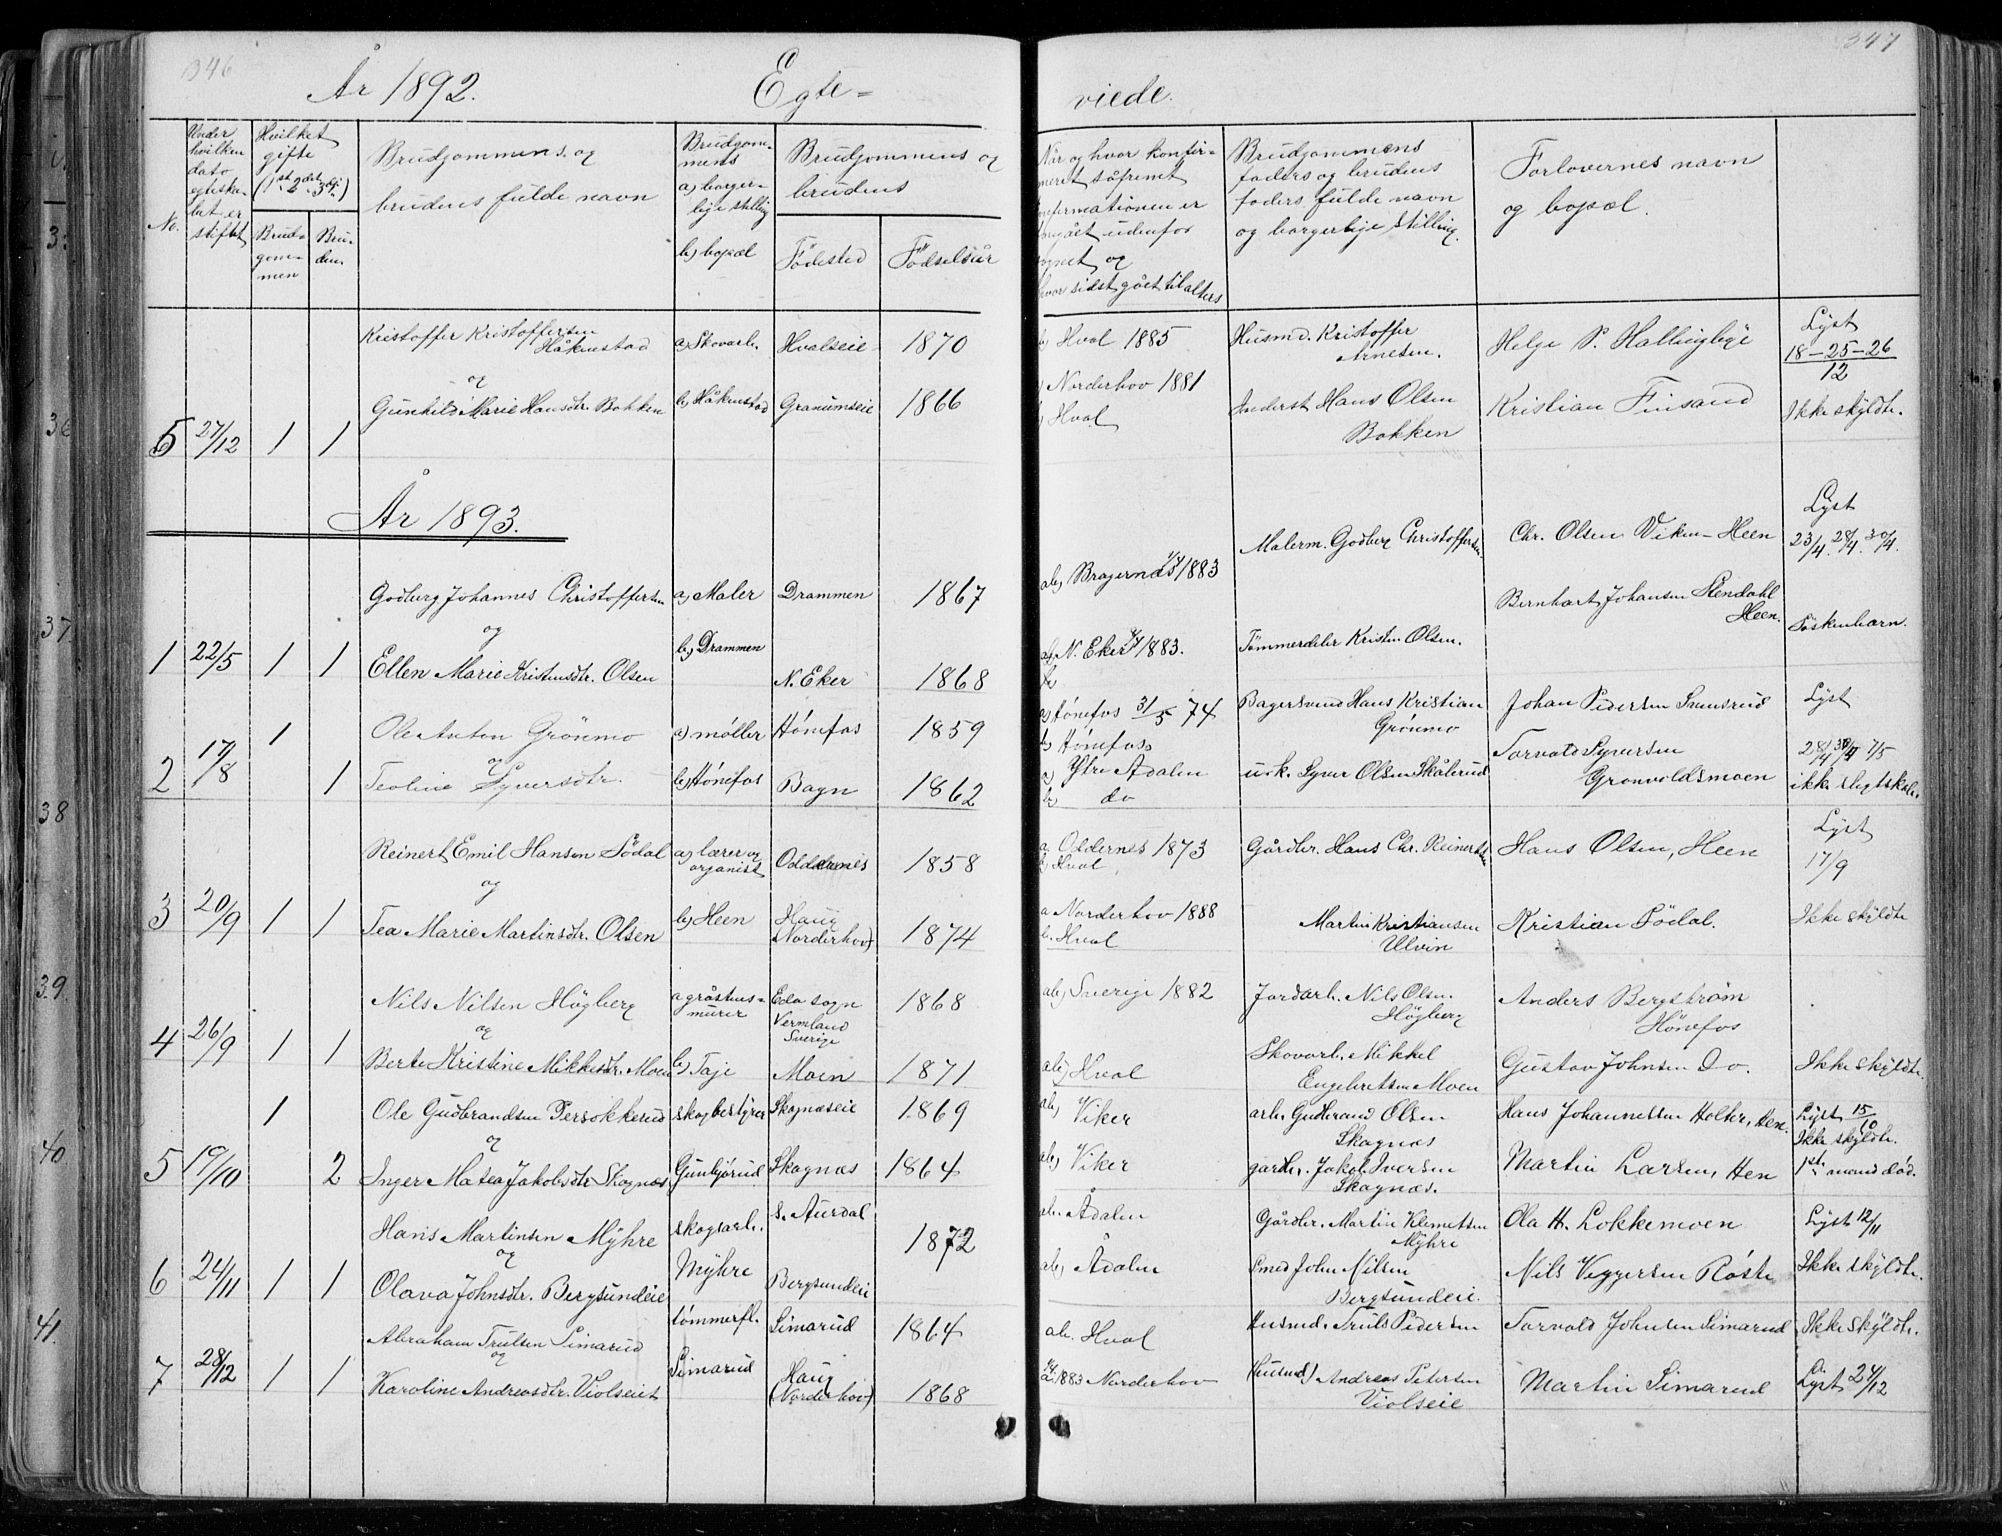 346
År 1892.
Egte-
No.
Under hvilken dato egteskabet er stiftet
Hvilket gifte (1st 2det 3dje)
Brudgommen
Bruden
Brudgommens og brudens fulde navn
Brudgommens a) borgerlige stilling b) bopæl
Brudgommens og brudens
Fødested
Fødselsår
Kristoffer Kristoffersen Håkenstad
a) Skovarb.
Hvalseie
1870
og
Gunhild Marie Hansdtr. Bakken
b) Håkenstad
Granumseie
1866
5 27/12 1 1
År 1893.
Godberg Johannes Christoffersen
a) Maler
Drammen
1867
og
b) Drammen
1 22/5 1 1
Ellen Marie Kristensdtr. Olsen
N. Eker
1868
Ole Anton Grönmo
1
a) møller
Hönefos
1859
og
2 17/8 1
Teoline Syversdtr.
b) Hönefos
Bagn
1862
Reinert Emil Hansen Södal
a) lærer og organist
Oddernes
1858
og
3 20/9 1 1
Tea Marie Martinsdtr. Olsen
b) Heen
Haug (Norderhov)
1874
Nils Nilsen Högberg
a gråstensmurer
Eda sogn Vermland Sverige
1868
og
4 26/9 1 1
Berte Kristine Mikkelsdtr. Moen
b) Taje
Moen
1871
1
Ole Gudbrandsen Persokkerud
skogbestyrer
Skagnæseie
1869
og
5 19/10 2
Inger Matea Jakobsdtr Skagnæs
Gunbjørud
Skagnæs
1864
Hans Martinsen Myhre
skogsarb.
S. Aurdal
1872
og
6 24/11 1 1
Olava Johnsdtr. Bergsundeie
Myhre
Bergsundeie
Abraham Trulsen Simarud
tømmerfl.
Simarud
1864
og
7 28/12 1 1
Karoline Andreasdtr. Violseiet
Simarud
Haug (Norderhov)
1868
347
viede.
Når og hvor konfirmeret såfremt
konfirmationen er
foregået udenfor
sognet, og
hvor sidst gået til alters
Brudgommens faders og brudens faders fulde navn og borgerlige stilling.
Forlovernes navn og bopæl.
b) Hval 1885
Husmd. Kristoffer Arnesen.
Helge P. Hallingbye
Lyst 18-25-26/12
Norderhov 1881
b) Hval
Inderst Hans Olsen Bakken
Kristian Finsand
Ikke skyldte.
Lyst
ab) Bragernæs 1883
Malerm. Godberg Christoffersen
Chr. Olsen Viken - Heen
23/4. 28/4. 30/4.
Bernhart Johansen Stendahl Heen.
Söskenbarn.
a) N. Eker 1883.
b)
Tömmerdeler Kristen Olsen.
a) Hönefos 31/5 74
b) Hönefos
Bagersvend Hans Kristian Grönmo
Johan Pedersen Svensrud
Lyst
28/4 30/4 7/5
a) Ytre Ådalen
b) do
Syver Olsen Skålerud
Torvald Syversen Gronvoldsmoen
ikke slegtskab.
a. Oddernes 1873
b) Hval
Gårdbr. Hans Chr. Reinertsen
Hans Olsen, Heen
Lyst 17/9
a Norderhov 1888
b. Hval
Martin Kristiansen Ulvin
Kristian Södal.
Ikke skyldte
ab) Sverige 1882
Jordarb. Nils Olsen Högberg
Anders Bergström Hönefos
ab) Hval
Skovarb. Mikkel Engebretsen Moen
Gustav Johnsen Do.
Ikke skyldte.
ab) Viker
arb. Gudbrand Olsen Skagnæs
Hans Johannessen Holter, Hen.
Lyst 15/10
Ikke skyldte.
ab) Viker
gardbr. Jakob Iversen Skagnæs.
Martin Larsen, Hen
1ste mand död.
ab. Ådalen
Gårdbr. Martin Klemetsen Myhre
Ola H. Lokkemoen
Lyst 12/11
ab) Ådalen
Smed John Nilsen Bergsundeie.
Nils Veggersen Röste
Ikke skyldte.
ab. Hval
Husmd. Truls Pedersen
Torvald Johnsen Simarud
Ikke skyldte.
1883 Norderhov
(husmd) Andreas Petersen Violseie
Martin Simarud
Lyst 24/12
36
37
38
39
40
41.